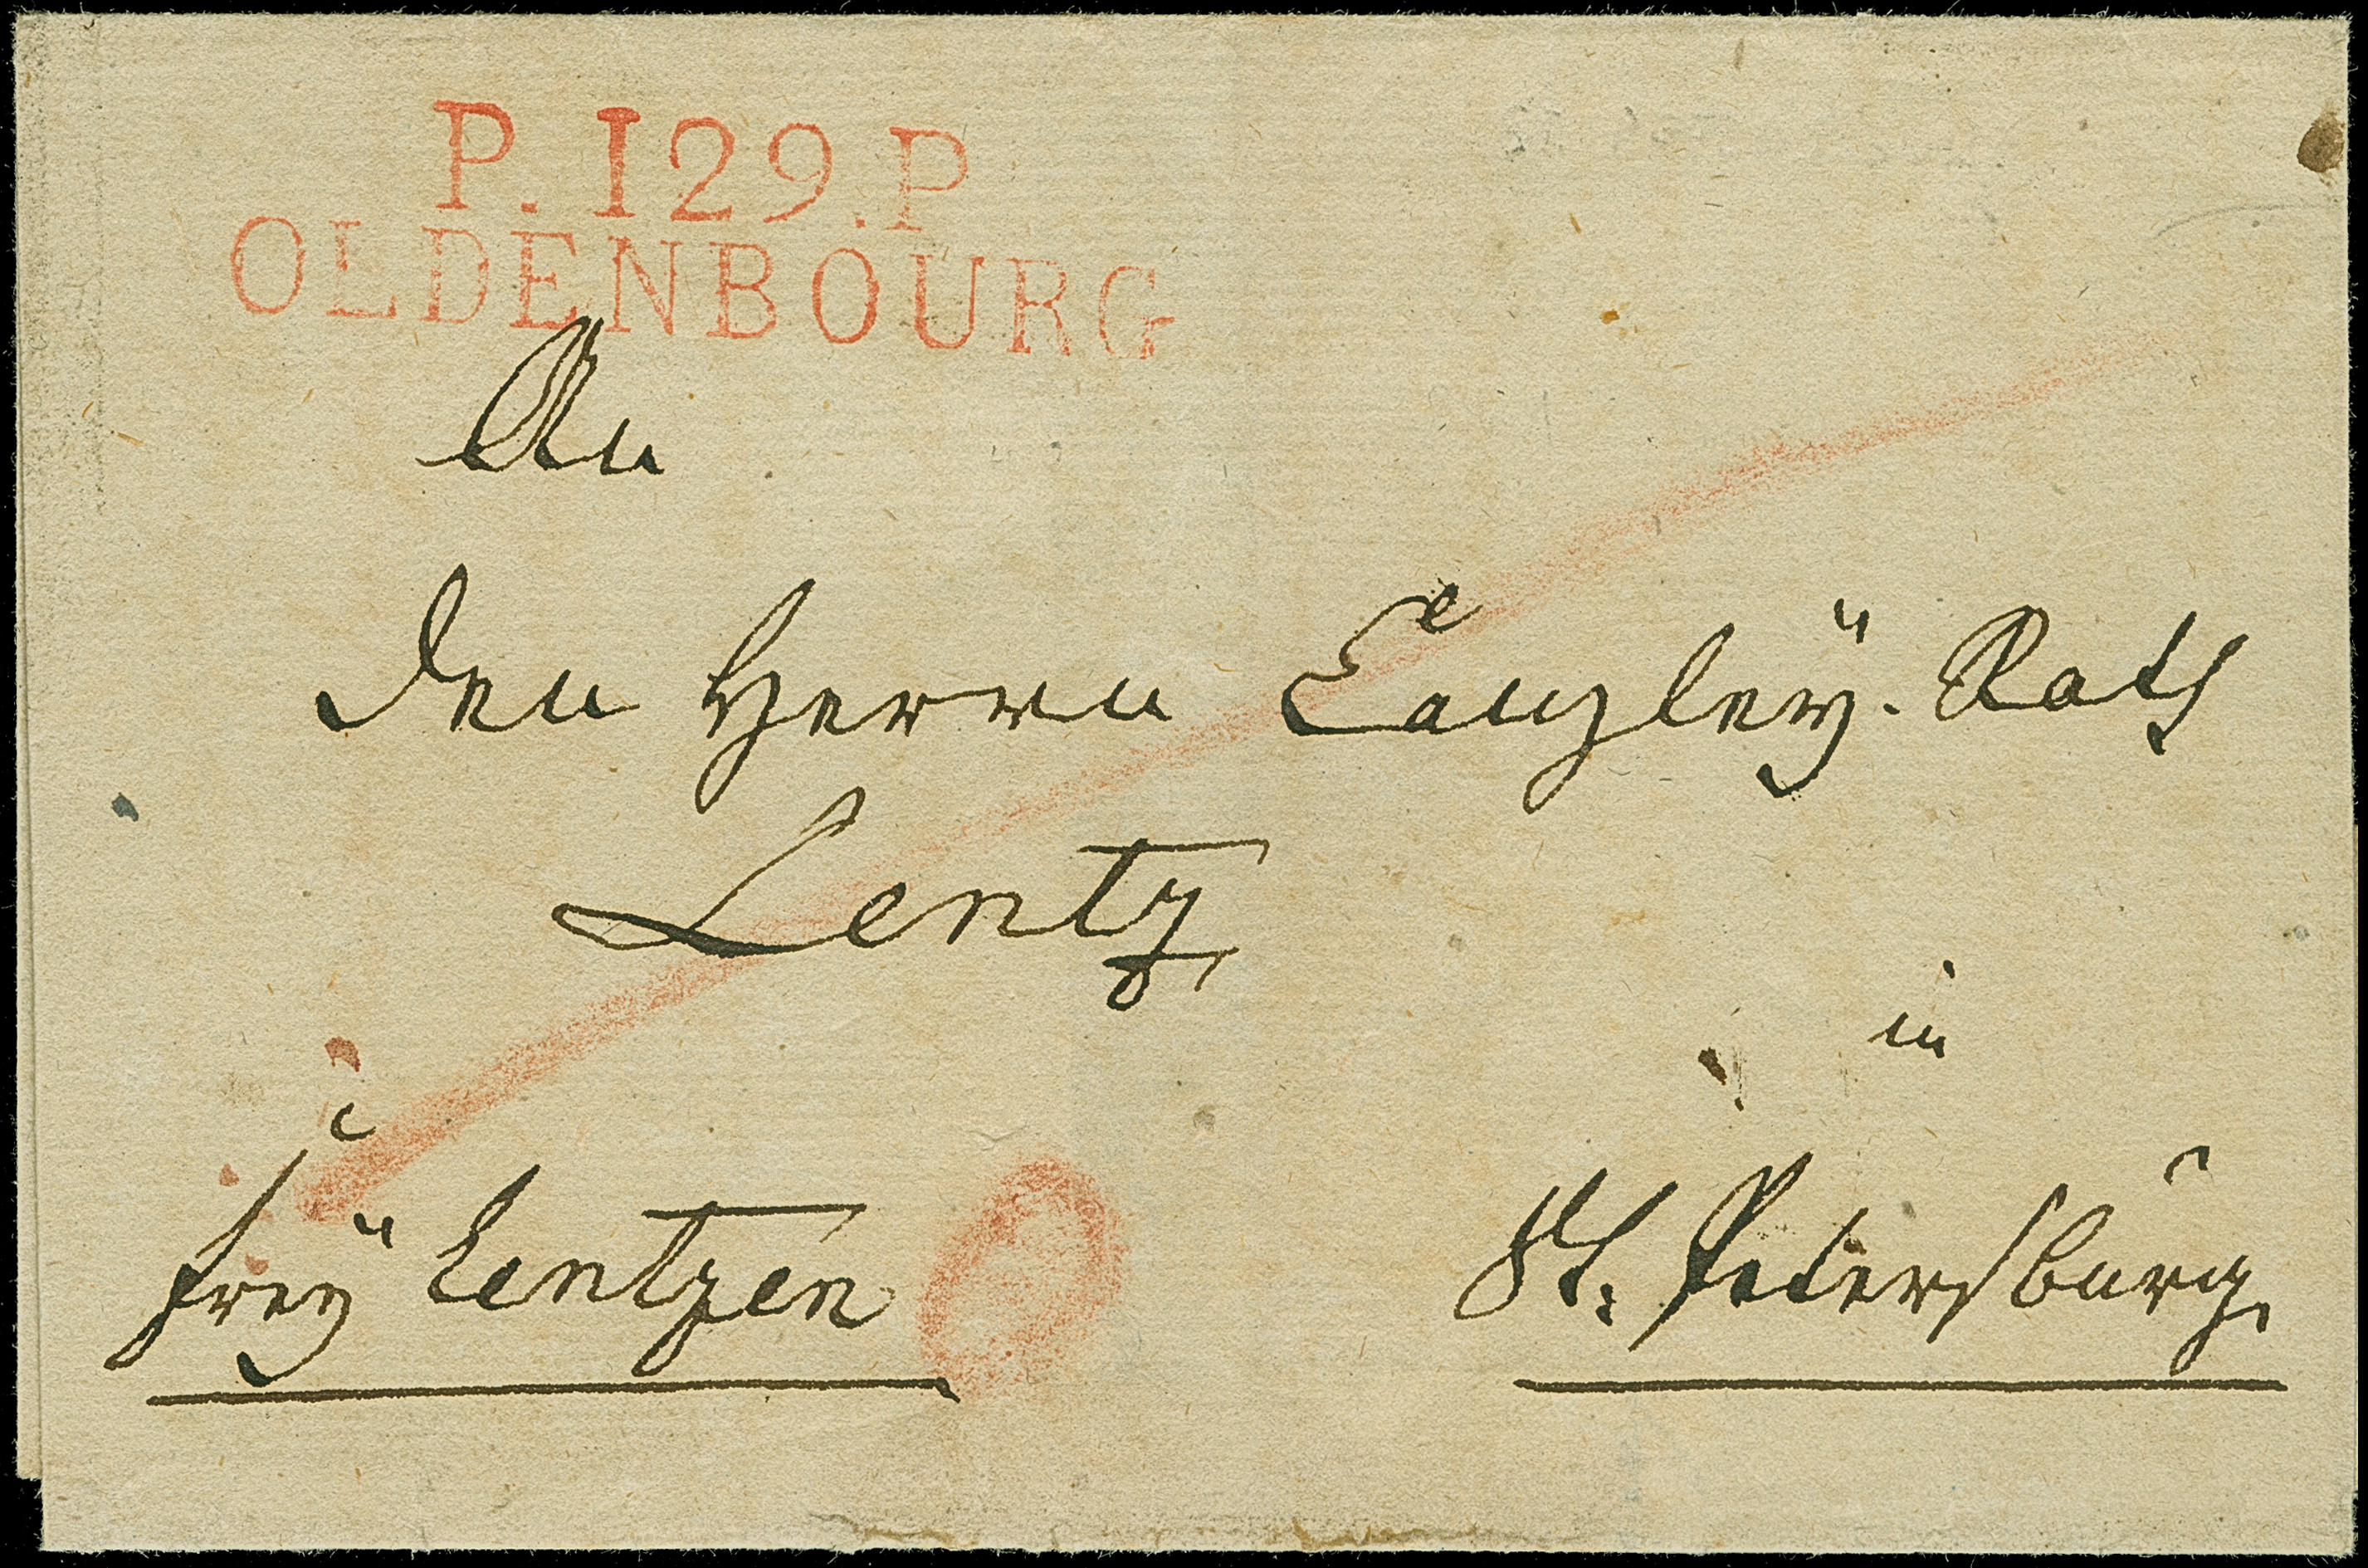 P. 129. P
OLDENBOURG
An
Den Herrn Canzleÿ-Rath
Lentz
in
freÿ Lentzen
St. Petersburg.